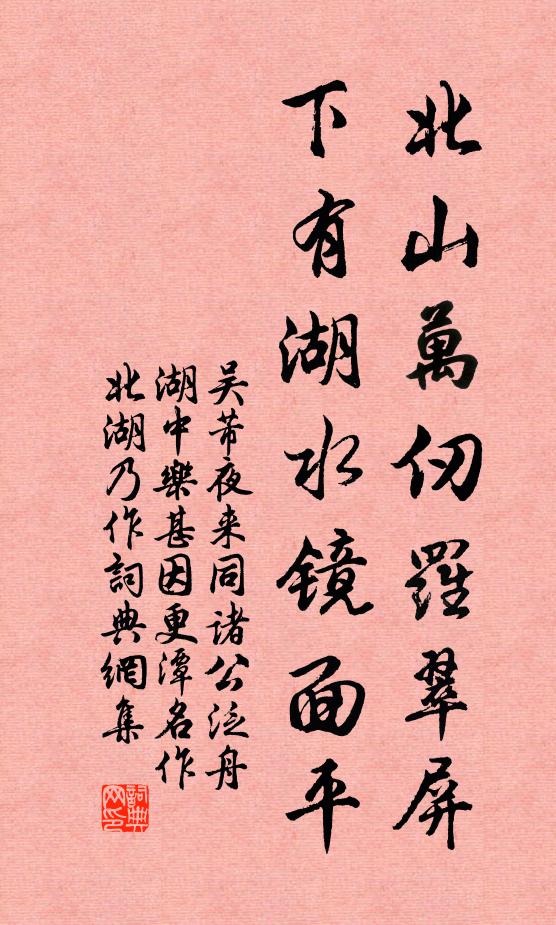 北山萬仞羅翠屏
下有湖水鏡面平
吴芾夜来同諸公泛舟
湖中樂甚因更潭名作
北湖乃作詞典網集
詞典
网印